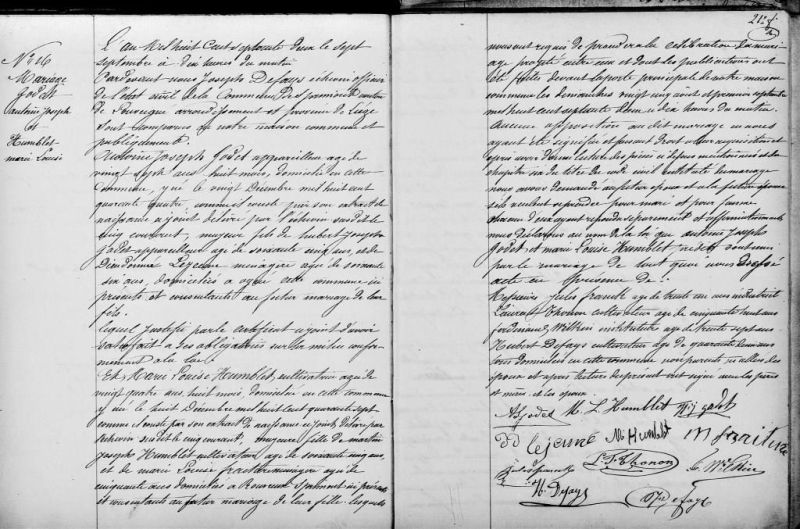 N° 16
Mariage
Godet
antoine joseph
et
Humblet
marie Louise
L'an Mil huit Cent septante deux le sept
septembre à dix heures du matin
Pardevant nous Joseph Defays échevin officier
de l'état civil de la Commune de
de arrondissement et province de Liège
sont comparus en notre maison commune et
publiquement
Antoine Joseph Godet appareilleur age de
vingt sept ans huit mois, domicilié en cette
Commune, y né le vingt Décembre mil huit cent
quarante quatre, comme il conste par son extrait de
naissance ajoint délivré par l'échevin susdit le
cinq courant, majeur fils de hubert Joseph
Godet appareilleur agé de soixante cinq ans, et de
Dieudonnée Lejeune menagère agée de soixante
six ans, domiciliés a cette commune ici
présents et consentants au futur mariage de leur
fils.
Lequel Justifie par le certificat ajoint d'avoir
satisfait a ses obligations sur la milice confor-
mément a la loi
Et Marie Louise Humblet, cultivatrice agée de
vingt quatre ans huit mois, domiciliée en cette commune
y née le huit Décembre mil huit cent quarante sept
comme il conste par son extrait de naissance ajoint délivré par
l'echevin susdit le cinq courant, majeure fille de martin
Joseph Humblet cultivateur agé de soixante cinq ans,
et de marie Louise menagère agée de
cinquante ans domiciliés a ici présents
et consentants au futur mariage de leur fille. Lesquels
212
nous ont requis de procéder a la célébration du mari-
age projeté entre eux et dont les publications ont
été faites devant la porte principale de notre maison
commune les dimanches vingt cinq août et premier septembre
mil huit cent septante deux a dix heures du matin.
Aucune opposition au dit mariage ne nous
ayant été signifiée et faisant droit a leur requisition et
après avoir donné lecture des pièces ci dessus mentionnées et du
chapitre six du titre du code civil intitulé du mariage
nous avons demandé au futur époux et a la future épouse
s'ils veulent se prendre pour mari et pour femme
chacun d'eux ayant répondu séparement et affirmativement
nous Déclarons au nom de la loi que antoine Joseph
Godet et marie Louise Humblet sont unis
par le mariage de tout quoi nous avons dressé
acte en présence de:
Messieurs Jules franck age de trente un ans industriel
Laurent Thonon cultivateur age de cinquante huit ans
ferdinand Wilkin instituteur age de trente sept ans
Hubert Defays cultivateur age de quarante deux ans
tous domiciliés en cette commune non parents ni alliés des
époux et après lecture du présent ont signé avec les pères
et mères. et les époux
A J Godet M. L Humblet H j godet
D Lejeune M Humblet
L. J. Thonon
Wilkin
H. Defays
Defays